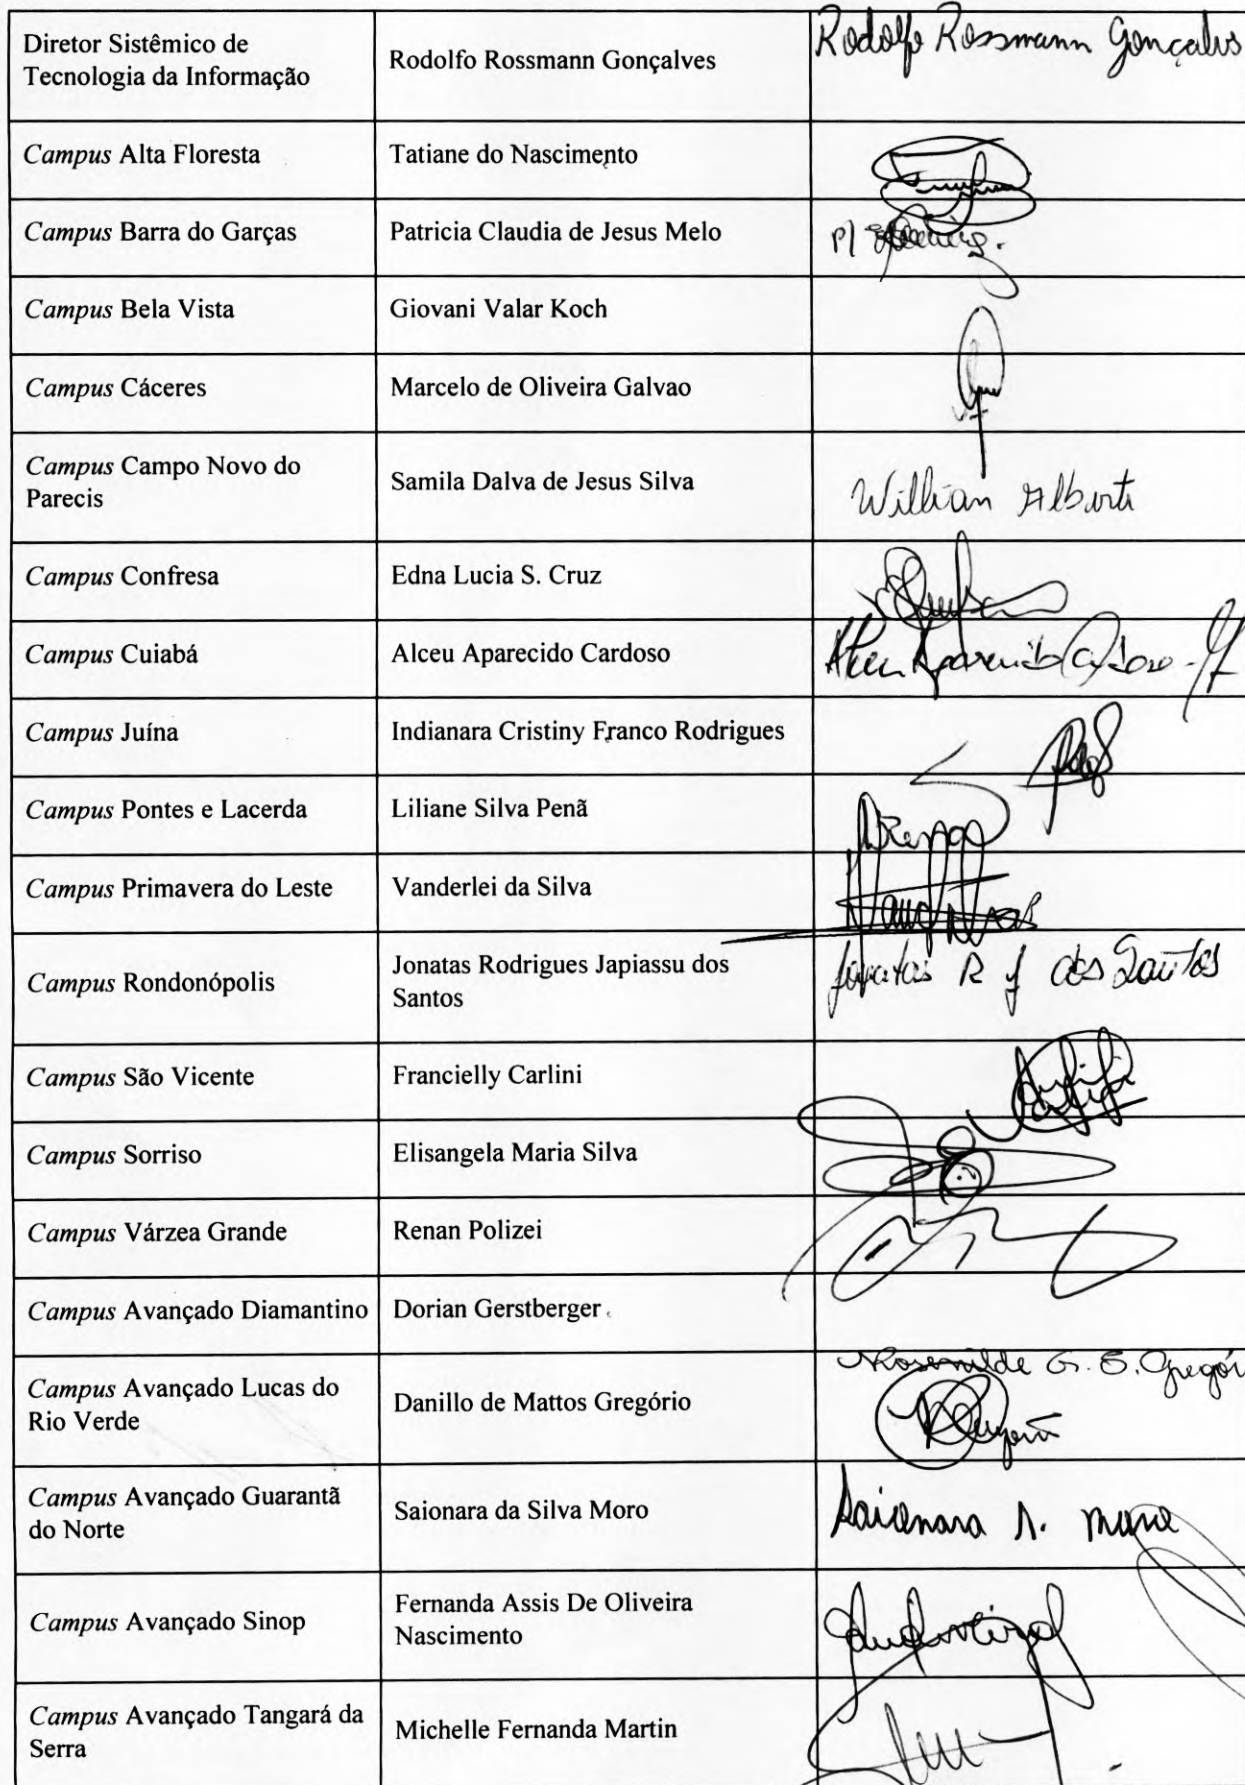 Diretor Sistêmico de
Tecnologia da Informação
Rodolfo Rossmann Gonçalves
Rodolfo Rossmann Gonçalves
Campus Alta Floresta
Tatiane do Nascimento
Campus Barra do Garças
Patricia Claudia de Jesus Melo
P/
Campus Bela Vista
Giovani Valar Koch
Campus Cáceres
Marcelo de Oliveira Galvao
Campus Campo Novo do
Parecis
Samila Dalva de Jesus Silva
Willian Alberti
Campus Confresa
Edna Lucia S. Cruz
Campus Cuiabá
Alceu Aparecido Cardoso
Alceu Aparecido Cardoso
Campus Juína
Indianara Cristiny Franco Rodrigues
Campus Pontes e Lacerda
Liliane Silva Penã
Campus Primavera do Leste
Vanderlei da Silva
Campus Rondonópolis
Jonatas Rodrigues Japiassu dos
Santos
Jonatas R J dos Santos
Campus São Vicente
Francielly Carlini
Campus Sorriso
Elisangela Maria Silva
Campus Várzea Grande
Renan Polizei
Campus Avançado Diamantino
Dorian Gerstberger
Campus Avançado Lucas do
Rio Verde
Danillo de Mattos Gregório
Rosenilde G. S. Gregór
Campus Avançado Guarantã
do Norte
Saionara da Silva Moro
Saionara S. Moro
Campus Avançado Sinop
Fernanda Assis De Oliveira
Nascimento
Campus Avançado Tangará da
Serra
Michelle Fernanda Martin